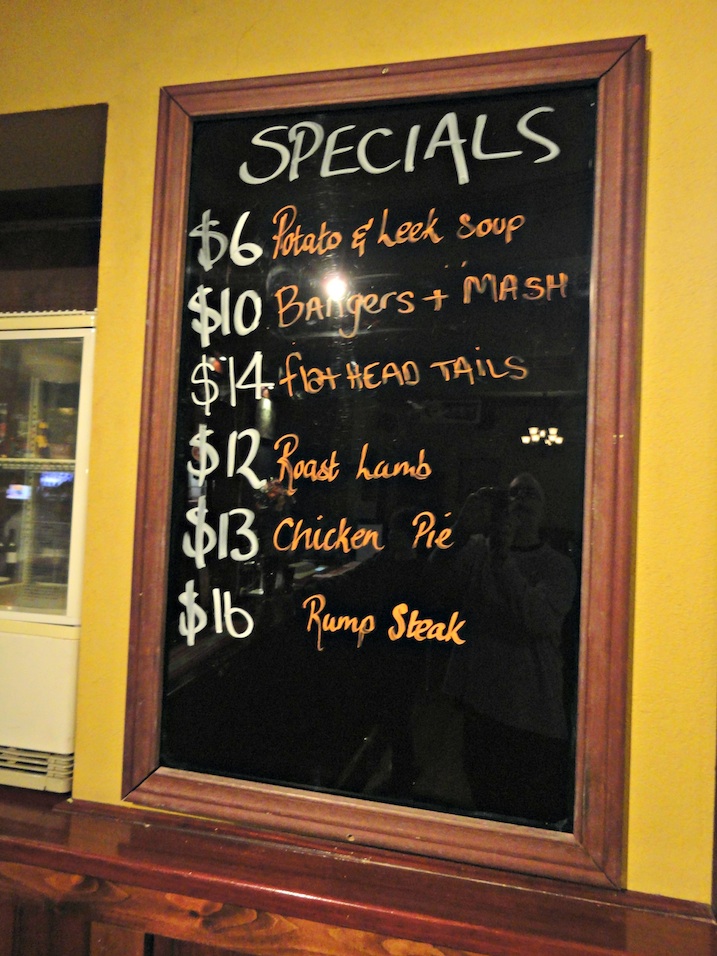 SPECIALS
$6 Potato & Leek Soup
$10 BANgers + MASH
$14 flatHEAD TAILS
$12 Roast Lamb
$13 Chicken Pie
$16 Rump Steak